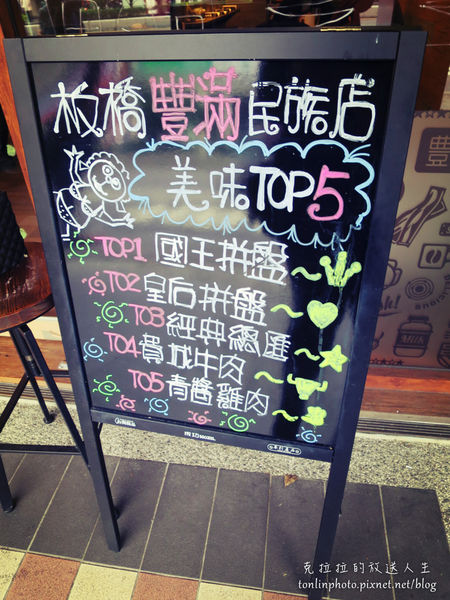 板橋豐滿民族店
美味TOP5
TOP1 國王拼盤
TO2 皇后拼盤
TO3 經典總匯
TO4 費城牛肉
TO5 青醬雞肉
豐
MILK
克拉拉的放送人生
tonlinphoto.pixnet.net/blog